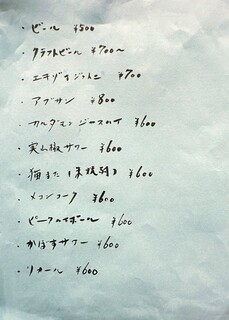 ・ビール ¥500
・クラフトビール ¥700〜
・エキゾチックジントニ ¥700
・アブサン ¥800
・カルダモンジースカイ ¥600
・実山椒サワー ¥600
・猫また ¥600
・メコンコーク ¥600
・ピーフルハイボール ¥600
・かぼすサワー ¥600
・リカール ¥600